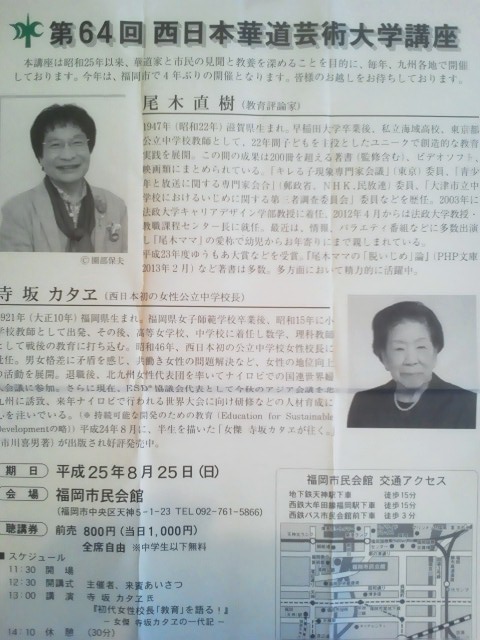 第64回 西日本華道芸術大学講座
本講座は昭和25年以来、華道家と市民の見聞と教養を深めることを目的に、毎年、九州各地で開催
しております。今年は、福岡市で4年ぶりの開催となります。皆様のお越しをお待ちしております。
尾木直樹 (教育評論家)
1947年(昭和22年)滋賀県生まれ。早稲田大学卒業後、私立海城高校、東京都
公立中学校教師として、22年間子どもを主役としたユニークで創造的な教育
実践を展開。この間の成果は200冊を超える著書(監修含む)、ビデオソフト、
映画類にまとめられている。「キレる子現象専門家会議」(東京)委員、「青少
年と放送に関する専門家会合」(郵政省、NHK、民放連)委員、「大津市立中
学校におけるいじめに関する第三者調査委員会」委員などを歴任。2003年に
法政大学キャリアデザイン学部教授に着任、2012年4月からは法政大学教授・
教職課程センター長に就任。最近は、情報、バラエティ番組などに多数出演
し「尾木ママ」の愛称で幼児からお年寄りにまで親しまれている。
平成23年度ゆうもあ大賞などを受賞。『尾木ママの「脱いじめ」論』(PHP文庫
2013年2月)など著書は多数。多方面において精力的に活躍中。
©園部保夫
寺坂 カタヱ (西日本初の女性公立中学校長)
1921年(大正10年)福岡県生まれ。福岡県女子師範学校卒業後、昭和15年に小
学校教師として出発、その後、高等女学校、中学校に着任し数学、理科教師
として戦後の教育に打ち込む。昭和46年、西日本初の公立中学校女性校長に
就任。男女格差に矛盾を感じ、共働き女性の問題解決など、女性の地位向上
の活動を展開。退職後、北九州女性代表団を率いてナイロビでの国連世界婦
人会議に参加。さらに現在、ESD※協議会代表として今秋のアジア会議を北
九州に誘致、来年ナイロビで行われる世界大会に向け研修などの人材育成に
力を注いでいる。(※ 持続可能な開発のための教育(Education for Sustainable
Developmentの略)) 平成24年8月に、半生を描いた「女傑 寺坂カタヱが往く。」
(市川喜男著)が出版され好評発売中。
期 日 平成25年8月25日(日)
会 場 福岡市民会館
(福岡市中央区天神5-1-23 TEL092-761-5866)
聴講券 前売 800円(当日1,000円)
全席自由 ※中学生以下無料
■スケジュール
11:30 開場
12:30 開講式 主催者、来賓あいさつ
13:00 講演 寺坂 カタヱ 氏
『初代女性校長「教育」を語る!』
-女傑 寺坂カタヱの一代記-
14:10 休憩 (30分)
福岡市民会館 交通アクセス
地下鉄天神駅下車 徒歩15分
西鉄大牟田線福岡駅下車 徒歩15分
西鉄バス市民会館前下車 徒歩3分
福岡市民会館